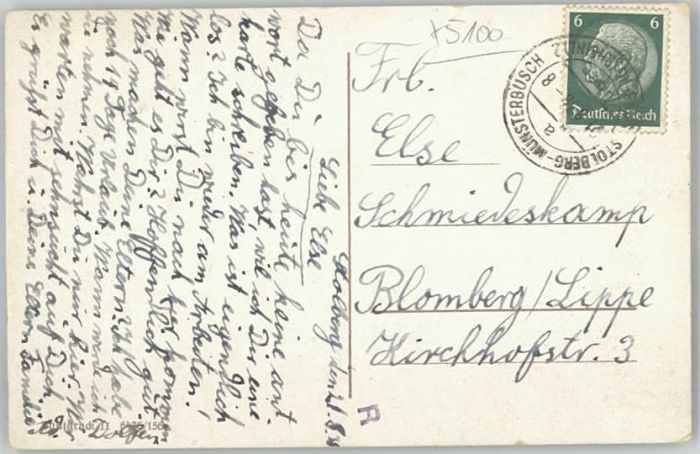 x5100
6 6
Deutsches Reich
STOLBERG-MÜNSTERBUSCH
a
Frl.
Else
Schmiedeskamp
Blomberg/Lippe
Kirchhofstr. 3
R
Stolberg, den 21.8.
Liebe Else
Da Du bis heite keine ant-
wort gegeben hast, wil ich Dir eine
karte schreiben. Was ist eigenlich
los? Ich bin wieder am Arbeiten,
Wann wirst Du nach hier kommen
Wie geht es Dir? Hoffentlich gut.
Was machen Deine Eltern? Ich habe
noch 19 Tage Urlaub. Wann werd ich
nehmen. Währst Du nur hier. Wir
warten mit sehnsucht auf Dich.
Es grüßt Dich u. Deine Eltern Familie